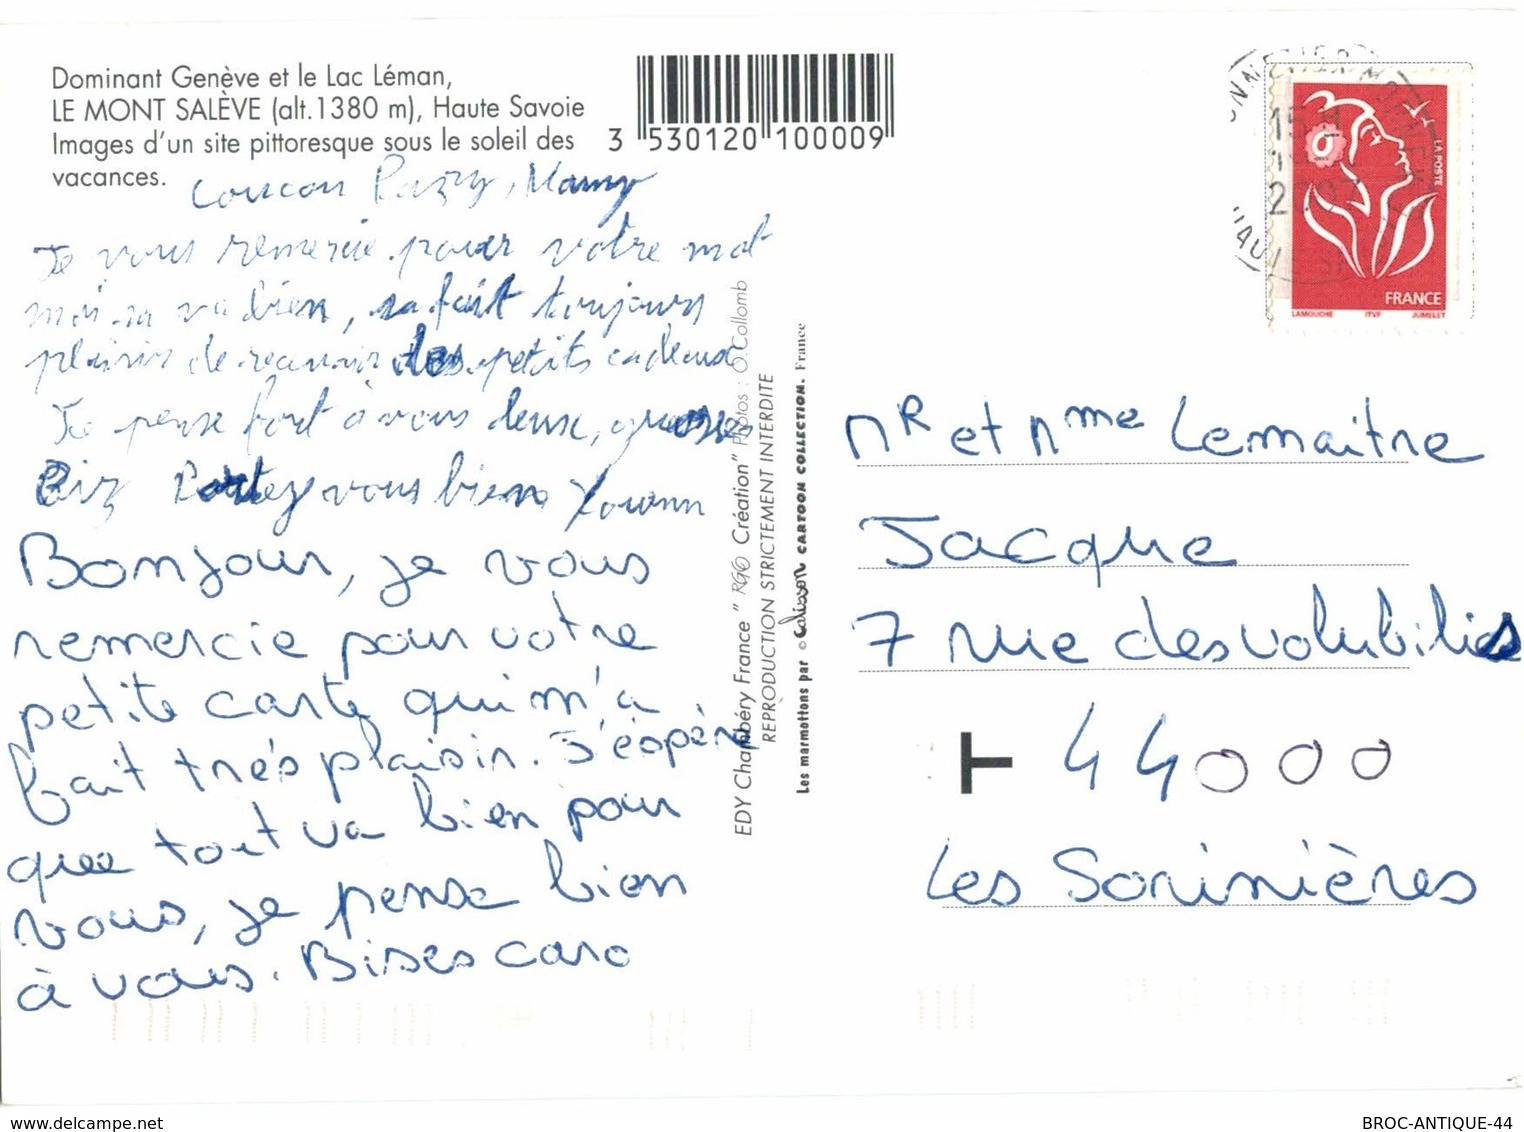 Dominant Genève et le Lac Léman,
LE MONT SALÈVE (alt.1380 m), Haute Savoie
Images d'un site pittoresque sous le soleil des
vacances.
3 530120 100009
Coucou Papy, Mamy
Je vous remercie pour votre mot
moi sa va bien, sa fait toujours
plaisir de recevoir des petits cadeaux
Je pense fort à vous deux, grosses
Biz Portez vous bien Yoann
Bonjour, je vous
remercie pour votre
petite carte qui m'a
fait très plaisir. J'éspère
que tout va bien pour
vous, je pense bien
à vous. Bises caro
EDY Chambéry France" RGO Création" Photos : O.Collomb
REPRODUCTION STRICTEMENT INTERDITE
Les marmottons par © Calisson CARTOON COLLECTION. France
15
2007
LA POSTE
FRANCE
LAMOUCHE ITVF JUMELET
MR et Mme Lemaitre
Jacque
7 rue des volubilis
T 44000
Les Sorinières
www.delcampe.net
BROC-ANTIQUE-44